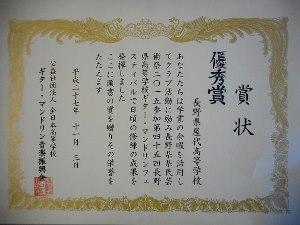 賞状
優秀賞
長野県屋代高等学校
あなたたちは学業の余暇を活用し
てクラブ活動に励み長野県県民芸
術祭二〇一五参加第四十五回長野
県高等学校ギター・マンドリンフェ
スティバルで日頃の修練の成果を
発揮しました
ここに優秀の賞を贈りその栄誉を
たたえます
平成二十七年十一月三日
公益社団法人全日本高等学校
ギター・マンドリン音楽振興会